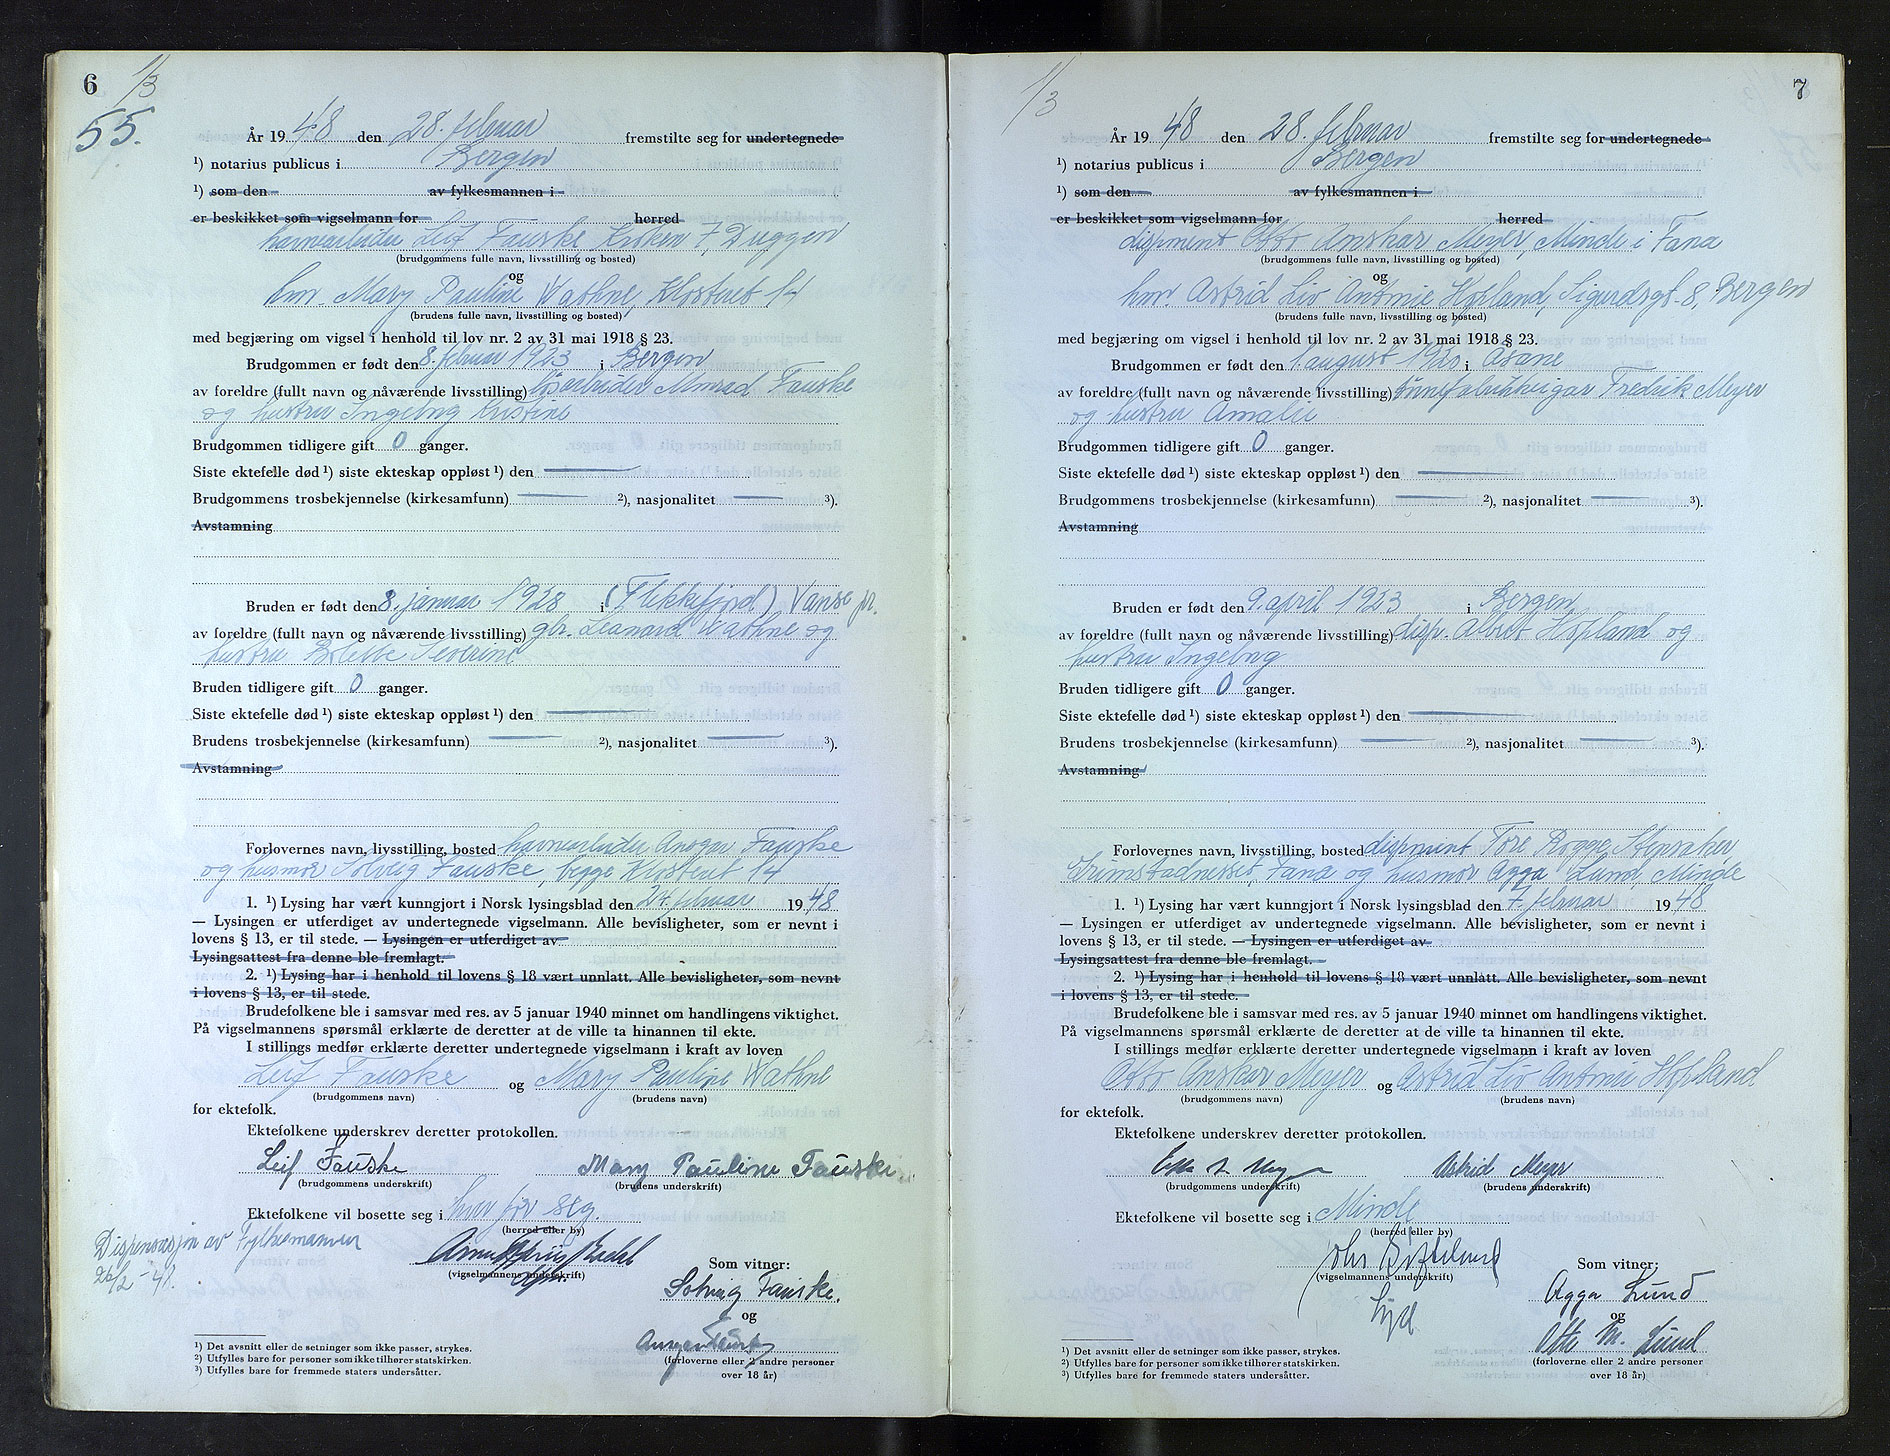 6
1/3
55.
År 19 48 den 28. februar fremstilte seg for undertegnede
¹) notarius publicus i Bergen
¹) som den av fylkesmannen i
er beskikket som vigselmann for herred
havnearbeider Leif Fauske Kroken 7, Duggen
(brudgommens fulle navn, livsstilling og bosted)
og
hm. Mary Pauline Wathne, Klosteret 14
(brudens fulle navn, livsstilling og bosted)
med begjæring om vigsel i henhold til lov nr. 2 av 31 mai 1918 § 23.
Brudgommen er født den 8. februar 1923 i Bergen
av foreldre (fullt navn og nåværende livsstilling) Monrad Fauske
og hustru Ingeborg Kristine
Brudgommen tidligere gift 0 ganger.
Siste ektefelle død ¹) siste ekteskap oppløst ¹) den
Brudgommens trosbekjennelse (kirkesamfunn) ²), nasjonalitet ³).
Avstamning
Bruden er født den 8. januar 1928 i (Flekkefjord) Vanse pr.
av foreldre (fullt navn og nåværende livsstilling) gbr. Leonard Wathne og
hustru Bolette Severine
Bruden tidligere gift 0 ganger.
Siste ektefelle død ¹) siste ekteskap oppløst ¹) den
Brudens trosbekjennelse (kirkesamfunn) ²), nasjonalitet ³).
Avstamning
Forlovernes navn, livsstilling, bosted havnearbeider Ansgar Fauske
og husmor Solveig Fauske, begge Klosteret 14
1. ¹) Lysing har vært kunngjort i Norsk lysingsblad den 24. februar 19 48
— Lysingen er utferdiget av undertegnede vigselmann. Alle bevisligheter, som er nevnt i
lovens § 13, er til stede. — Lysingen er utferdiget av
Lysingsattest fra denne ble fremlagt.
2. ¹) Lysing har i henhold til lovens § 18 vært unnlatt. Alle bevisligheter, som nevnt
i lovens § 13, er til stede.
Brudefolkene ble i samsvar med res. av 5 januar 1940 minnet om handlingens viktighet.
På vigselmannens spørsmål erklærte de deretter at de ville ta hinannen til ekte.
I stillings medfør erklærte deretter undertegnede vigselmann i kraft av loven
Leif Fauske og Mary Pauline Wathne
(brudgommens navn) (brudens navn)
for ektefolk.
Ektefolkene underskrev deretter protokollen.
Leif Fauske Mary Pauline Fauske
(brudgommens underskrift) (brudens underskrift)
Ektefolkene vil bosette seg i hver for seg.
(herred eller by)
Dispensasjon av Fylkesmannen
26/2-48.
(vigselmannens underskrift)
Som vitner:
Solveig Fauske.
og
Ansgar Fauske
(forloverne eller 2 andre personer
over 18 år)
¹) Det avsnitt eller de setninger som ikke passer, strykes.
²) Utfylles bare for personer som ikke tilhører statskirken.
³) Utfylles bare for fremmede staters undersåtter.
1/3
7
År 19 48 den 28. februar fremstilte seg for undertegnede
¹) notarius publicus i Bergen
¹) som den av fylkesmannen i
er beskikket som vigselmann for herred
disponent Otto Anskar Meyer, Minde i Fana
(brudgommens fulle navn, livsstilling og bosted)
og
hm. Astrid Liv Antonie Hopland, Sigurdsgt. 8, Bergen
(brudens fulle navn, livsstilling og bosted)
med begjæring om vigsel i henhold til lov nr. 2 av 31 mai 1918 § 23.
Brudgommen er født den 1. august 1920 i Åsane
av foreldre (fullt navn og nåværende livsstilling) Fredrik Meyer
og hustru Amalie
Brudgommen tidligere gift 0 ganger.
Siste ektefelle død ¹) siste ekteskap oppløst ¹) den
Brudgommens trosbekjennelse (kirkesamfunn) ²), nasjonalitet ³).
Avstamning
Bruden er født den 9. april 1923 i Bergen
av foreldre (fullt navn og nåværende livsstilling) disp. Albert Hopland og
hustru Ingeborg
Bruden tidligere gift 0 ganger.
Siste ektefelle død ¹) siste ekteskap oppløst ¹) den
Brudens trosbekjennelse (kirkesamfunn) ²), nasjonalitet ³).
Avstamning
Forlovernes navn, livsstilling, bosted disponent Tore Rogge
Grimstadneset, Fana og husmor Agga Lund, Minde
1. ¹) Lysing har vært kunngjort i Norsk lysingsblad den 7. februar 19 48
— Lysingen er utferdiget av undertegnede vigselmann. Alle bevisligheter, som er nevnt i
lovens § 13, er til stede. — Lysingen er utferdiget av
Lysingsattest fra denne ble fremlagt.
2. ¹) Lysing har i henhold til lovens § 18 vært unnlatt. Alle bevisligheter, som nevnt
i lovens § 13, er til stede.
Brudefolkene ble i samsvar med res. av 5 januar 1940 minnet om handlingens viktighet.
På vigselmannens spørsmål erklærte de deretter at de ville ta hinannen til ekte.
I stillings medfør erklærte deretter undertegnede vigselmann i kraft av loven
Otto Anskar Meyer og Astrid Liv Antonie Hopland
(brudgommens navn) (brudens navn)
for ektefolk.
Ektefolkene underskrev deretter protokollen.
Astrid Meyer
(brudgommens underskrift) (brudens underskrift)
Ektefolkene vil bosette seg i Minde
(herred eller by)
(vigselmannens underskrift)
Som vitner:
Agga Lund
og
Otto M. Lund
(forloverne eller 2 andre personer
over 18 år)
¹) Det avsnitt eller de setninger som ikke passer, strykes.
²) Utfylles bare for personer som ikke tilhører statskirken.
³) Utfylles bare for fremmede staters undersåtter.